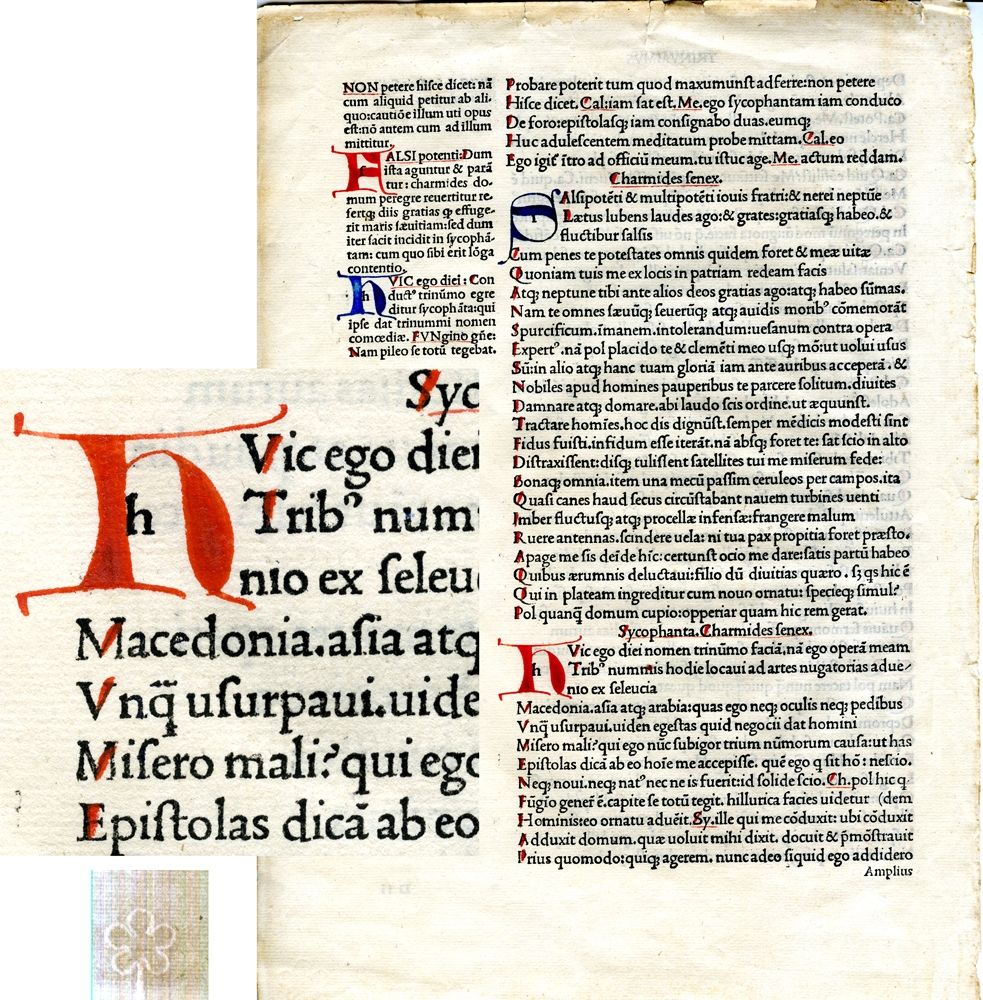 NON petere hisce dicet: nā
cum aliquid petitur ab ali-
quo:cautiōe illum uti opus
est:nō autem cum ad illum
mittitur.
FALSI potenti:Dum
ista aguntur & parā
tur: charmides do-
mum peregre reuertitur re-
fertq; diis gratias ꝙ effuge-
rit maris sæuitiam:sed dum
iter facit incidit in sycophā-
tam: cum quo sibi erit lōga
contentio.
hVIC ego diei: Con
ductꝰ trinūmo egre
ditur sycophāta:qui
ipse dat trinummi nomen
comœdiæ. FVNgino gñe:
Nam pileo se totū tegebat.
Probare poterit tum quod maxumūst adferre:non petere
Hisce dicet. Cal:iam sat est. Me.ego sycophantam iam conduco
De foro:epistolasq; iam consignabo duas.eumq;
Huc adulescentem meditatum probe mittam. Cal.eo
Ego igit̄ ītro ad officiū meum.tu istuc age. Me. actum reddam.
Charmides senex.
SAlsipotēti & multipotēti iouis fratri:& nerei neptūe
Lætus lubens laudes ago:& grates:gratiasq; habeo.&
fluctibur salsis
Cum penes te potestates omnis quidem foret & meæ uitæ
Quoniam tuis me ex locis in patriam redeam facis
Atq; neptune tibi ante alios deos gratias ago:atq; habeo sūmas.
Nam te omnes sæuūq; seuerūq; atq; auidis moribꝰ cōmemorāt
Spurcificum.īmanem.intolerandum:uesanum contra opera
Expertꝰ.nā pol placido te & clemēti meo usq; mō:ut uolui usus
Sū:in alio atq; hanc tuam gloriā iam ante auribus acceperā. &
Nobiles apud homines pauperibus te parcere solitum.diuites
Damnare atq; domare.abi laudo scis ordine.ut æquunst.
Tractare homīes.hoc dis dignūst.semper mēdicis modesti sint
Fidus fuisti.infidum esse iterāt.nā absq; foret te: sat scio in alto
Distraxissent:disq; tulissent satellites tui me miserum fede:
Bonaq; omnia.item una mecū passim ceruleos per campos.ita
Quasi canes haud secus circūstabant nauem turbines uenti
Imber fluctusq; atq; procellæ infensæ:frangere malum
Ruere antennas.scindere uela: ni tua pax propitia foret præsto.
Apage me sis deīde hīc: certunst ocio me dare:satis partū habeo
Quibus ærumnis deluctaui:filio dū diuitias quæro. s; qs hic ē
Qui in plateam ingreditur cum nouo ornatu: specieq; simul?
Pol quanq̄ domum cupio:opperiar quam hic rem gerat.
Sycophanta. Charmides senex.
hVic ego diei nomen trinūmo faciā.nā ego operā meam
Tribꝰ nummis hodie locaui ad artes nugatorias adue/
nio ex seleucia
Macedonia.asia atq; arabia:quas ego neq; oculis neq; pedibus
Vnq̄ usurpaui.uiden egestas quid negocii dat homini
Misero mali?qui ego nūc subigor trium nūmorum causa:ut has
Epistolas dicā ab eo hoīe me accepisse. quē ego q sit hō: nescio.
Neq; noui.neq; natꝰ nec ne is fuerit:id solide scio. Ch.pol hic q
Fūgio generē ē.capite se totū tegit. hillurica facies uidetur (dem
Hominis:eo ornatu aduēit. Sy.ille qui me cōduxit: ubi cōduxit
Adduxit domum.quæ uoluit mihi dixit. docuit & p̄mōstrauit
Prius quomodo:quicq; agerem. nunc adeo siquid ego addidero
Amplius
Syc
hVic ego diei
Tribꝰ num
nio ex seleu
Macedonia.asia atq
Vnq̄ usurpaui.uide
Misero mali?qui ego
Epistolas dicā ab eo